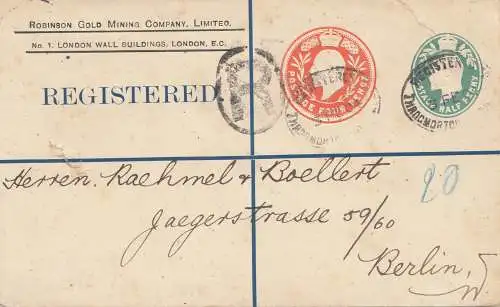 Robinson Gold Mining Company, Limited.
No. 1, London Wall Buildings, London, E.C.
REGISTERED
R
POSTAGE FOUR PENCE
HALF PENNY
REGISTERED
THROGMORTON
REGISTERED
THROGMORTON
Herren Raehmel & Boellert
Jaegerstrasse 59/60
20
Berlin,
W.